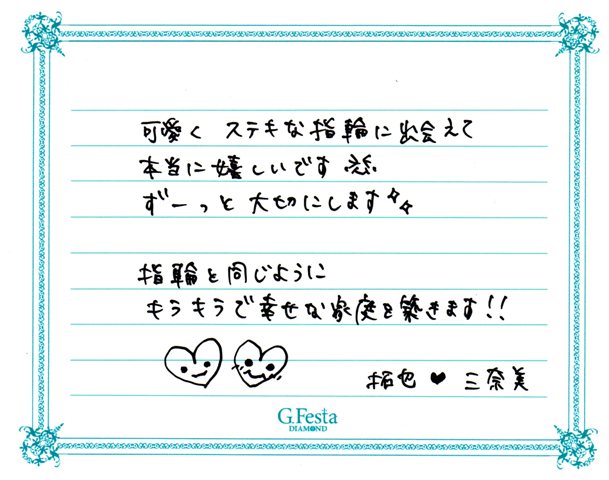 可愛く ステキな指輪に出会えて
本当に嬉しいです
ずーっと大切にします
指輪と同じように
キラキラで幸せな家庭を築きます!!
拓也 ♥ 三奈美
G.Festa
DIAMOND